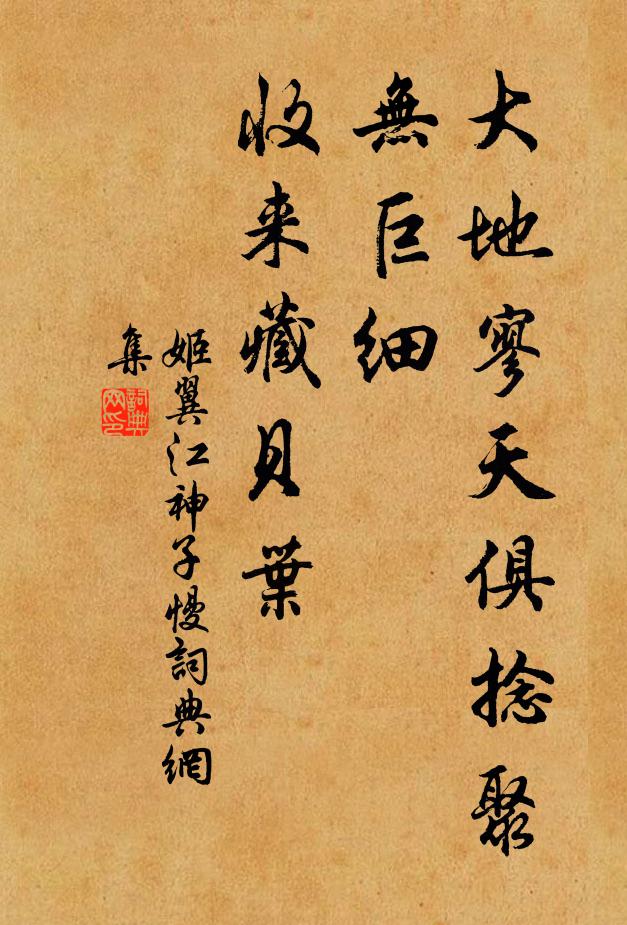 大地寥天俱捻聚
無巨细
收来藏貝葉
姬翼江神子慢詞典網
集
詞典
网印